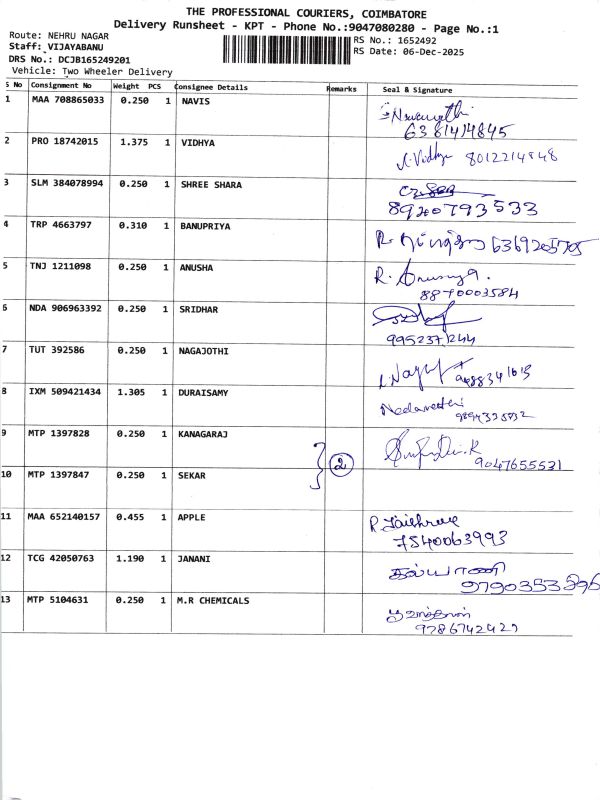 THE PROFESSIONAL COURIERS, COIMBATORE
Delivery Runsheet - KPT - Phone No.:9047080280 - Page No.:1
Route: NEHRU NAGAR
RS No.: 1652492
Staff: VIJAYABANU
RS Date: 06-Dec-2025
DRS No.: DCJB165249201
Vehicle: Two Wheeler Delivery
S No Consignment No Weight PCS Consignee Details Remarks Seal & Signature
1 MAA 708865033 0.250 1 NAVIS
6381414845
2 PRO 18742015 1.375 1 VIDHYA
Vidhya 8012214848
3 SLM 384078994 0.250 1 SHREE SHARA
8920793533
4 TRP 4663797 0.310 1 BANUPRIYA
R. 6369205705
5 TNJ 1211098 0.250 1 ANUSHA
R. Anusuya.
8870003584
6 NDA 906963392 0.250 1 SRIDHAR
9952371244
7 TUT 392586 0.250 1 NAGAJOTHI
8 IXM 509421434 1.305 1 DURAISAMY
9 MTP 1397828 0.250 1 KANAGARAJ
9047655531
2
10 MTP 1397847 0.250 1 SEKAR
11 MAA 652140157 0.455 1 APPLE
R. Jaishree
7540063993
12 TCG 42050763 1.190 1 JANANI
கல்யாணி
9790353396
13 MTP 5104631 0.250 1 M.R CHEMICALS
9786742427